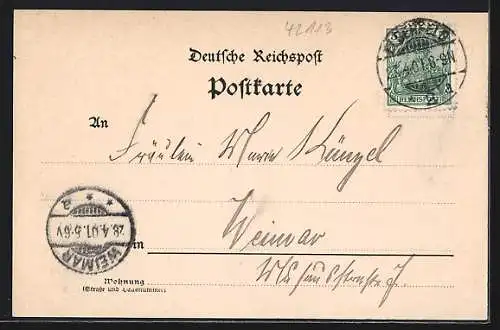 42113
Deutsche Reichspost
Postkarte
An
Fräulein Marie Künzel
Weimar
in
Wohnung
(Straße und Hausnummer)
WEIMAR
28.4.01.5-6V
a